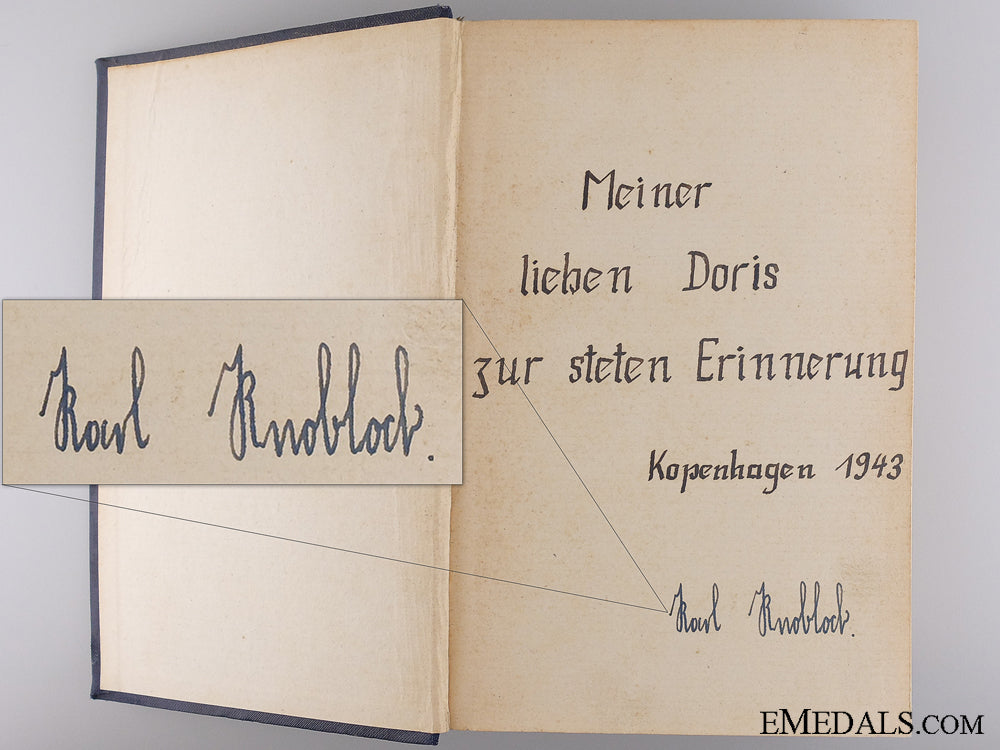 Meiner
lieben Doris
zur steten Erinnerung
Kopenhagen 1943
Karl Knobloch.
Karl Knobloch.
EMEDALS.COM